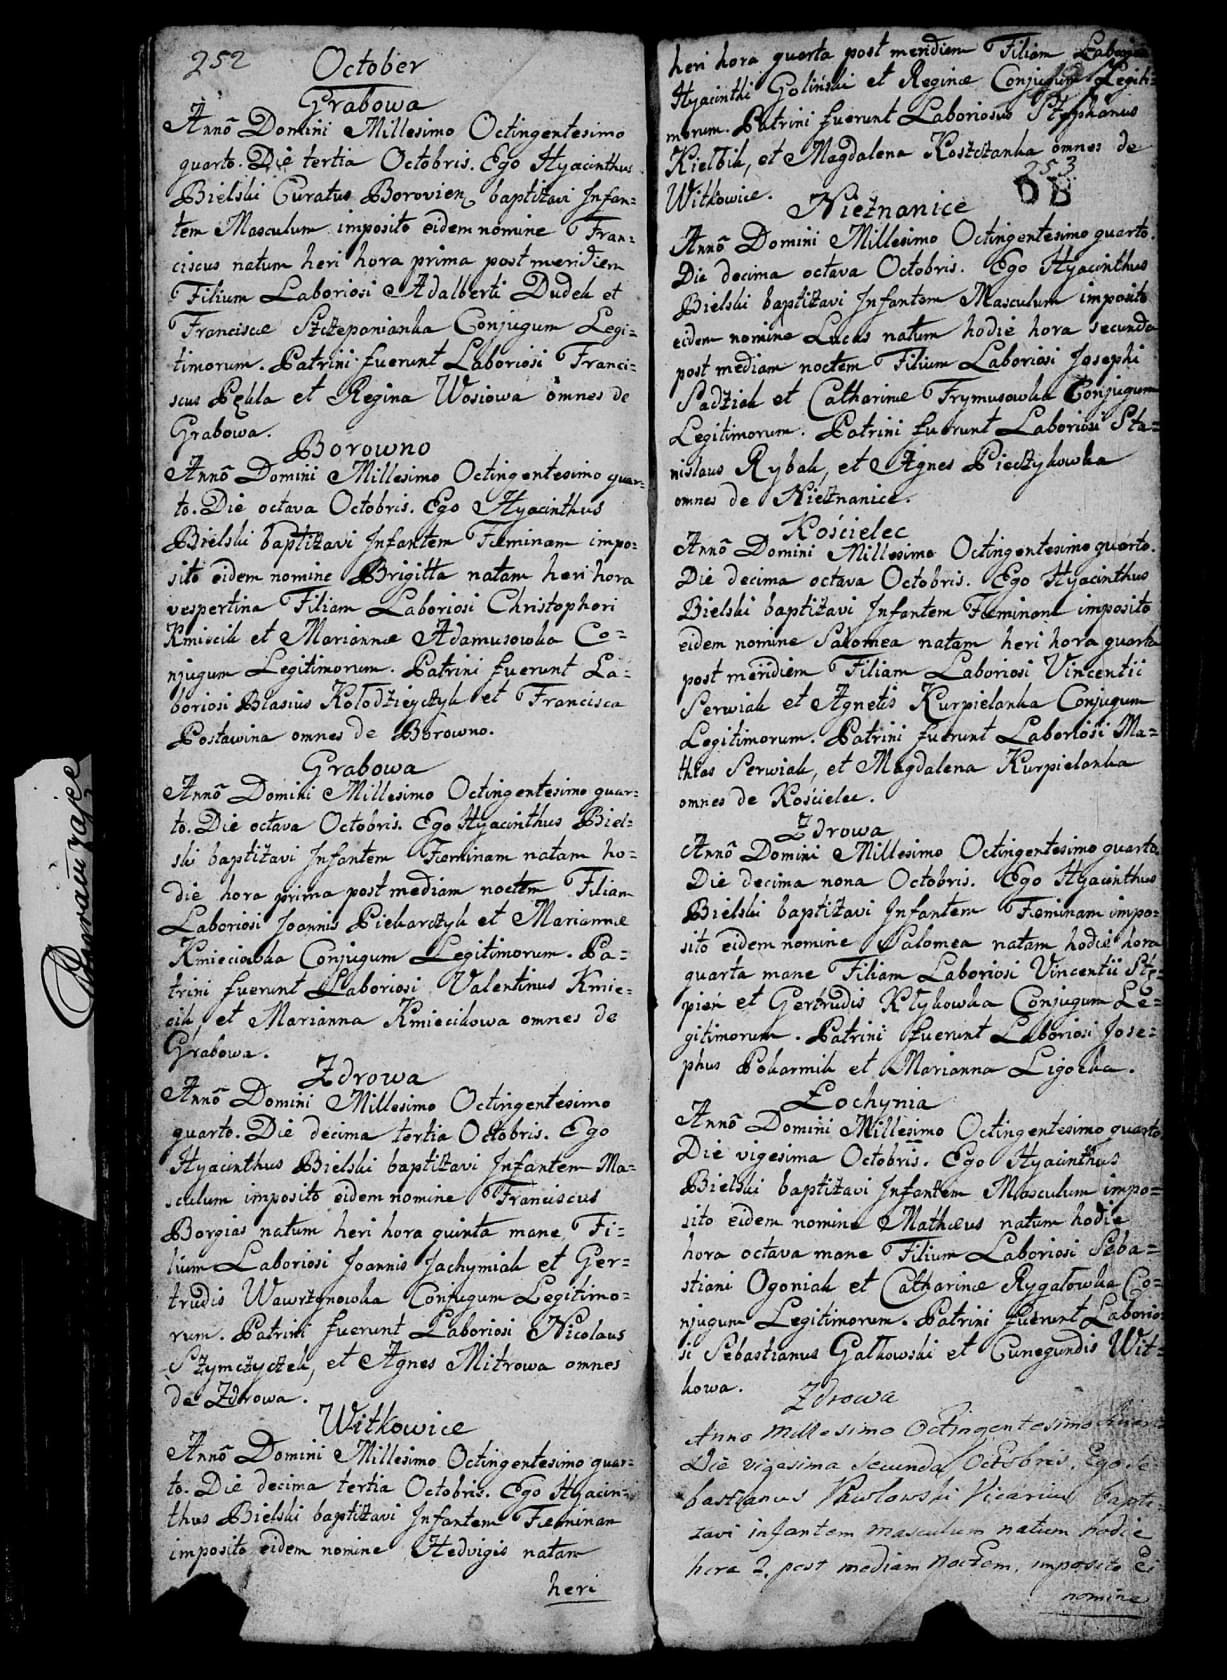 252
October
Grabowa
Annõ Domini Millesimo Octingentesimo
quarto. Die tertia Octobris. Ego Hyacinthus
Bielski Curatus Borovien baptizavi Infan=
tem Masculum imposito eidem nomine Fran=
ciscus natum heri hora prima post meridiem
Filium Laboriosi Adalberti Dudek et
Franciscæ Szczeponianka Conjugum Legi=
timorum. Patrini fuerunt Laboriosi Franci=
scus Pękla et Regina Wosiowa omnes de
Grabowa.
Borowno
Annõ Domini Millesimo Octingentesimo quar=
to. Die octava Octobris. Ego Hyacinthus
Bielski baptizavi Infantem Fæminam impo=
sito eidem nomine Brigitta natam heri hora
vespertina Filiam Laboriosi Christophori
Kmiecik et Mariannæ Adamusowka Co=
njugum Legitimorum. Patrini fuerunt La=
boriosi Blasius Kołodzieyczyk et Francisca
Postawina omnes de Borowno.
Grabowa
Annõ Domini Millesimo Octingentesimo quar=
to. Die octava Octobris. Ego Hyacinthus Biel=
ski baptizavi Infantem Fæminam natam ho=
die hora prima post mediam noctem Filiam
Laboriosi Joannis Piekarczyk et Mariannæ
Kmieciowka Conjugum Legitimorum. Pa=
trini fuerunt Laboriosi Valentinus Kmie=
cik, et Marianna Kmiecikowa omnes de
Grabowa.
Zdrowa
Annõ Domini Millesimo Octingentesimo
quarto. Die decima tertia Octobris. Ego
Hyacinthus Bielski baptizavi Infantem Ma=
sculum imposito eidem nomine Franciscus
Borgias natum heri hora quinta mane Fi=
lium Laboriosi Joannis Jachymiak et Ger=
trudis Wawrzynowka Conjugum Legitimo=
rum. Patrini fuerunt Laboriosi Nicolaus
Szymczyczek, et Agnes Mitrowa omnes
de Zdrowa.
Witkowice
Annõ Domini Millesimo Octingentesimo quar=
to. Die decima tertia Octobris. Ego Hyacin=
thus Bielski baptizavi Infantem Fæminam
imposito eidem nomine Hedvigis natam
heri
heri hora quarta post meridiem Filiam
Hyacinthi Goliński et Reginæ Conjugum Legiti=
morum. Patrini fuerunt Laboriosus Stephanus
Kiełbik, et Magdalena Kostczanka omnes de
Witkowice.
253
Nieznanice
Annõ Domini Millesimo Octingentesimo quarto.
Die decima octava Octobris. Ego Hyacinthus
Bielski baptizavi Infantem Masculum imposito
eidem nomine Lucas natum hodie hora secunda
post mediam noctem Filium Laboriosi Josephi
Sadziak et Catharinæ Frymusowka Conjugum
Legitimorum. Patrini fuerunt Laboriosi Sta=
nislaus Rybak, et Agnes Pieczykowka
omnes de Nieznanice.
Kościelec
Annõ Domini Millesimo Octingentesimo quarto.
Die decima octava Octobris. Ego Hyacinthus
Bielski baptizavi Infantem Fæminam imposito
eidem nomine Salomea natam heri hora quarta
post meridiem Filiam Laboriosi Vincentii
Serwiak et Agnetis Kurpielanka Conjugum
Legitimorum. Patrini fuerunt Laboriosi Ma=
thias Serwiak, et Magdalena Kurpielanka
omnes de Kościelec.
Zdrowa
Annõ Domini Millesimo Octingentesimo quarto
Die decima nona Octobris. Ego Hyacinthus
Bielski baptizavi Infantem Fæminam impo=
sito eidem nomine Salomea natam hodie hora
quarta mane Filiam Laboriosi Vincentii Stę=
pień et Gertrudis Kłykowska Conjugum Le=
gitimorum. Patrini fuerunt Laboriosi Jose=
phus Pokarmik et Marianna Ligocka.
Łochynia
Annõ Domini Millesimo Octingentesimo quarto
Die vigesima Octobris. Ego Hyacinthus
Bielski baptizavi Infantem Masculum impo=
sito eidem nomine Mathæus natum hodie
hora octava mane Filium Laboriosi Seba=
stiani Ogoniak et Catharinæ Rygałowka Co=
njugum Legitimorum. Patrini fuerunt Laborio=
si Sebastianus Gałkowski et Cunegundis Wit=
kowa.
Zdrowa
Anno Millesimo Octingentesimo Quarto
Die vigesima Secunda Octobris. Ego Se
bastianus Pawłowski Vicarius bapti
zavi infantem masculum natum hodie
hora 2. post mediam noctem, imposito Ei
nomine